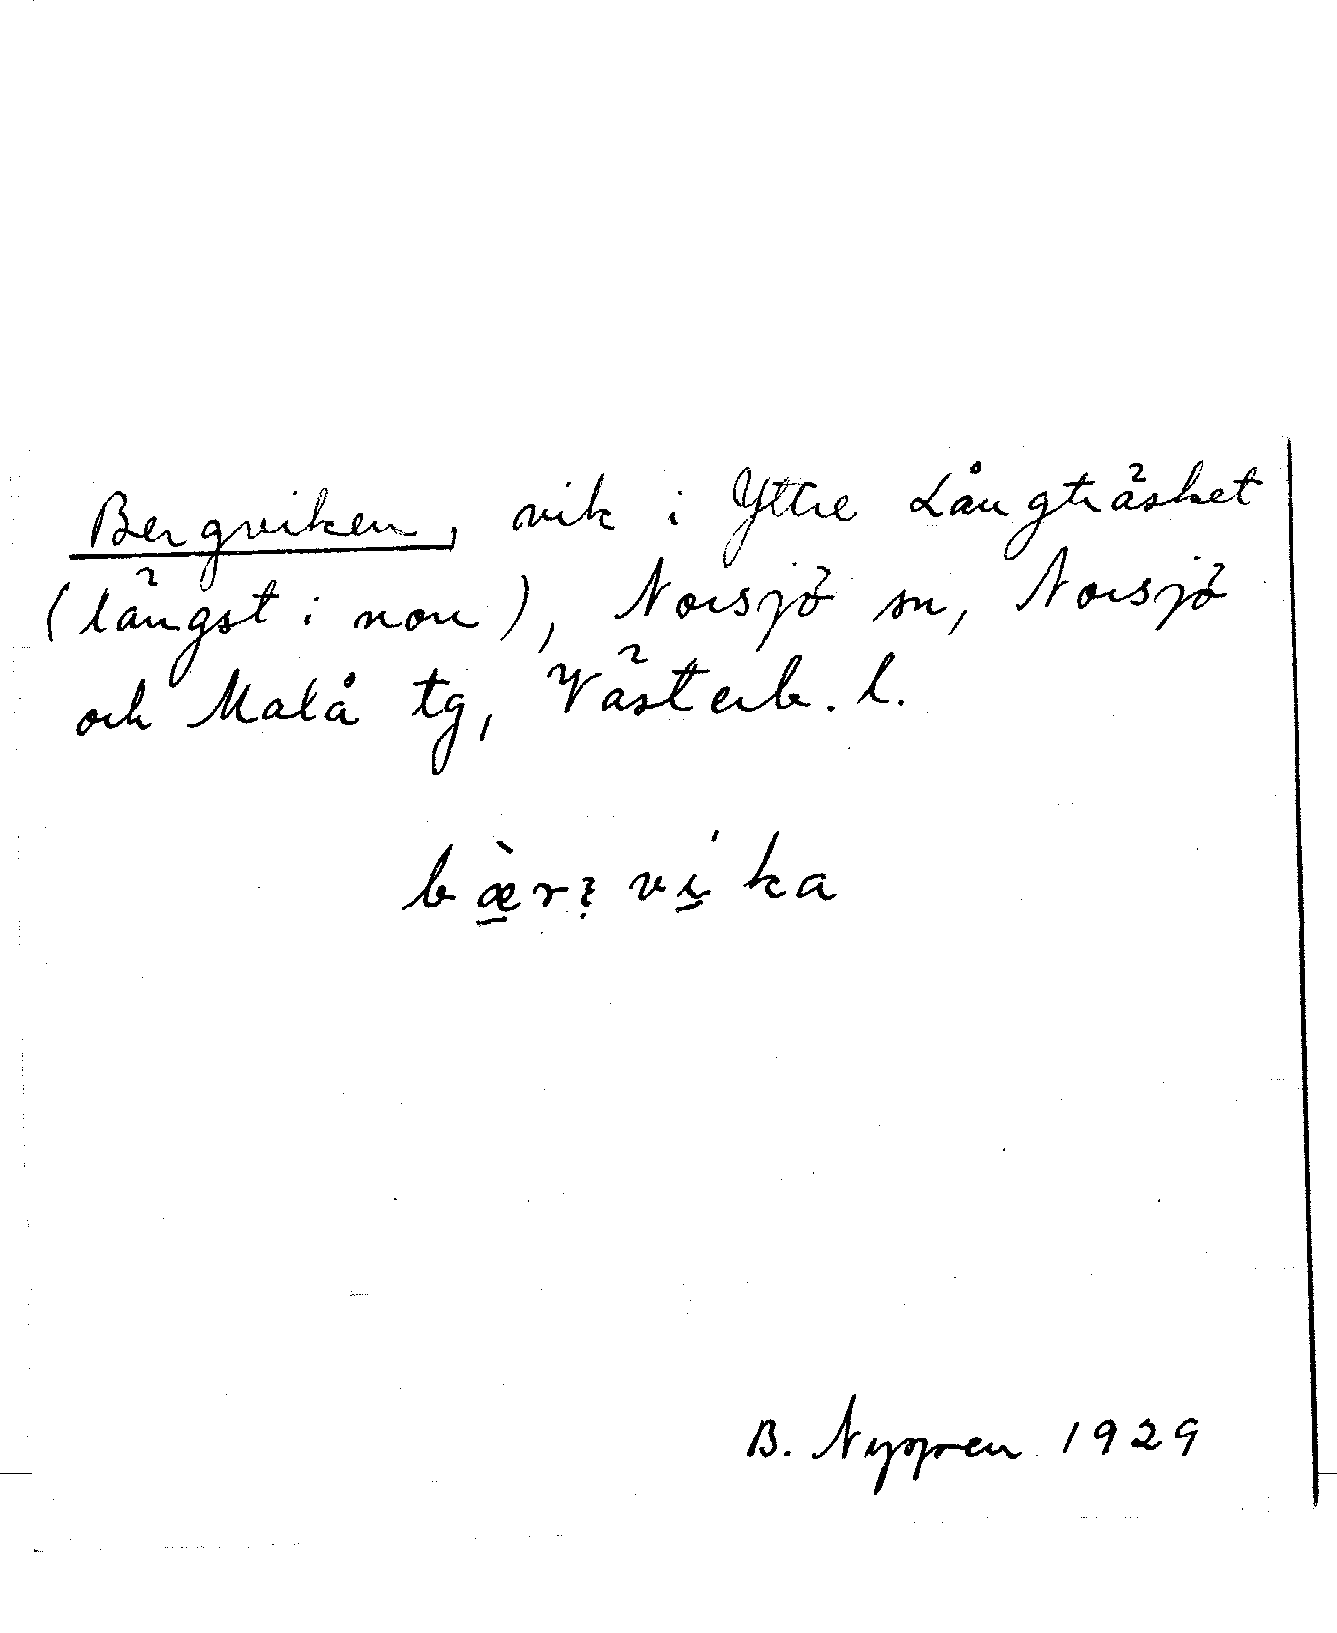 Bergviken, vik i Yttre Långträsket
(längst i norr), Norsjö sn, Norsjö
och Malå tg, Västerb. l.
vika
B. Nyppen 1929